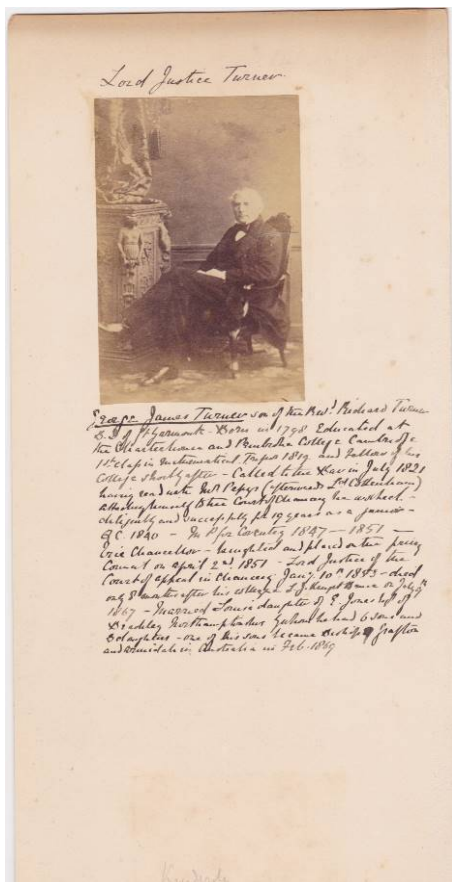 Lord Justice Turner.
George James Turner son of the Revd. Richard Turner
B.D of Gt Yarmouth - Born in 1798 Educated at
the Charterhouse and Pembroke College Cambridge
1st class in Mathematical Tripos 1819 and Fellow of his
College shortly after - Called to the Bar in July 1821
having read with Mr Pepys (afterwards Ld Cottenham)
attaching himself to the Court of Chancery he worked -
diligently and successfully for 19 years as a junior -
Q.C. 1840 - M P for Coventry 1847 - 1851 -
Vice Chancellor - knighted and placed on the privy
Council on April 2nd. 1851 - Lord Justice of the
Court of appeal in Chancery Jany. 10th 1853 - died
only 8 months after his colleague L. J. Knight Bruce on July 9th
1867 - Married Louisa daughter of E. Jones of
Brackley Northamptonshire by whom he had 6 sons and
3 daughters - one of his sons became Bishop of Grafton
and Armidale in Australia in Feb. 1869